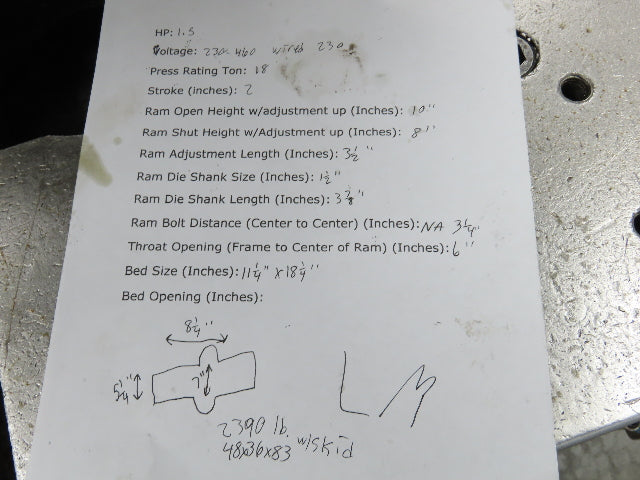 HP: 1.5
Voltage: 230-460 wired 230
Press Rating Ton: 18
Stroke (inches): 2
Ram Open Height w/adjustment up (Inches): 10"
Ram Shut Height w/Adjustment up (Inches): 8"
Ram Adjustment Length (Inches): 3½"
Ram Die Shank Size (Inches): 1½"
Ram Die Shank Length (Inches): 3⅞"
Ram Bolt Distance (Center to Center) (Inches): NA 3¼"
Throat Opening (Frame to Center of Ram) (Inches): 6"
Bed Size (Inches): 11¼" x 18¼"
Bed Opening (Inches):
8¼"
5¼" 7"
LM
2390 lb.
48x36x83 w/skid